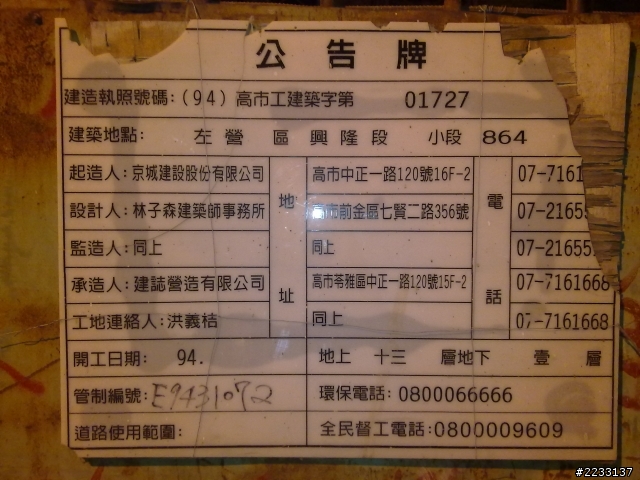 公告牌
建造執照號碼:(94)高市工建築字第 01727
建築地點: 左營 區 興隆 段 小段 864
起造人:京城建設股份有限公司 地 高市中正一路120號16F-2 電 07-7161
設計人:林子森建築師事務所 高市前金區七賢二路356號 07-21655
監造人:同上 同上 07-21655
承造人:建誌營造有限公司 址 高市苓雅區中正一路120號15F-2 話 07-7161668
工地連絡人:洪義桔 同上 07-7161668
開工日期: 94. 地上 十三 層地下 壹 層
管制編號:E9431072 環保電話:0800066666
道路使用範圍: 全民督工電話:0800009609
#2233137